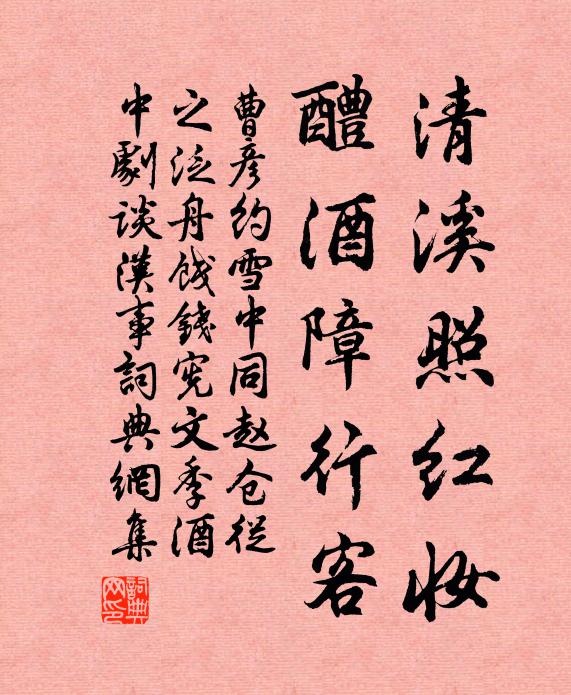 清溪照红妆
醴酒障行客
曹彦约雪中同赵仓从
之泛舟饯钱宪文季酒
中剧谈汉事词典網集
詞典网印